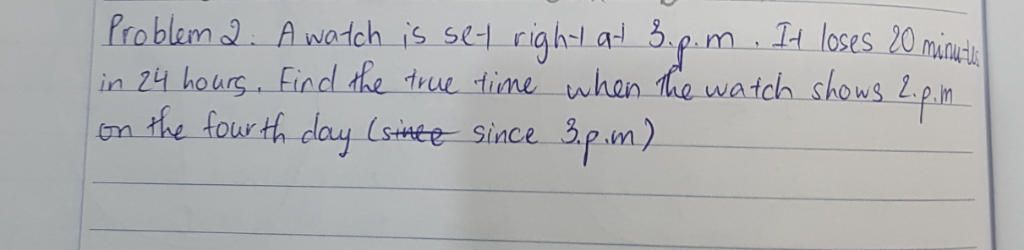 Problem 2: A watch is set right at 3.p.m. It loses 20 minutes
in 24 hours. Find the true time when the watch shows 2.p.m
on the fourth day (since since 3.p.m)